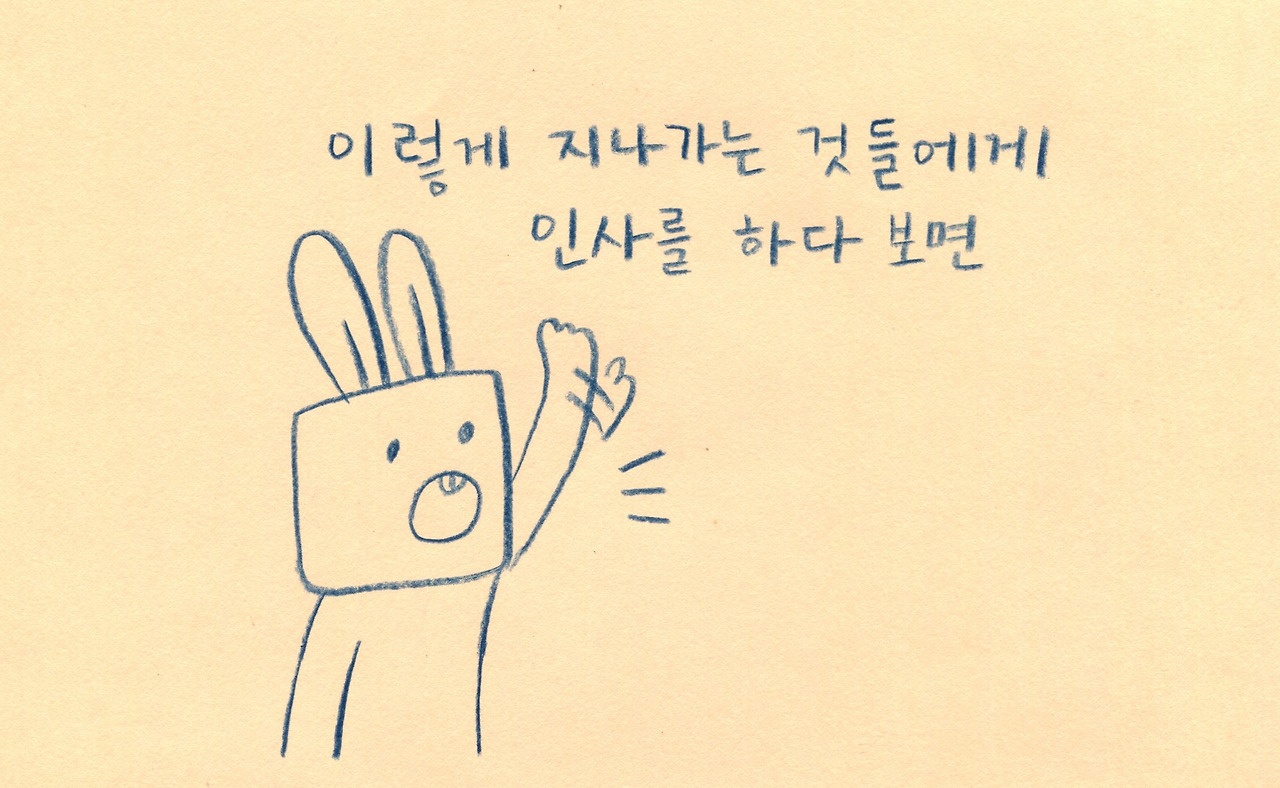 이렇게 지나가는 것들에게
인사를 하다 보면